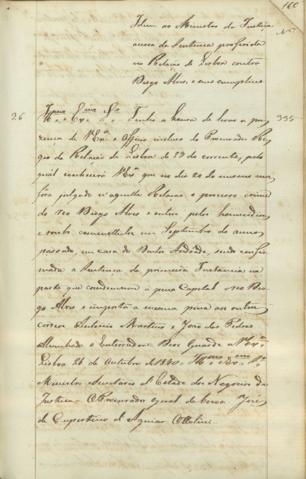 160
Idem ao Ministro da Justiça
acerca da Sentença proferida
na Relação de Lisboa contra
Diogo Alves, e seus cumplices
26
335
Illmo Exmo Sr Tenho a honra de levar a pre
zença de V Exa o Officio incluso do Procurador Re
gio da Relação de Lisboa de 23 do corrente, pelo
qual conhecerá V Exa que no dia 20 do mesmo mez
fora julgado n'aquella Relação o processo crime
do reo Diogo Alves e outros pelos homicidios
e roubo commettidos em Septembro do anno
passado, em casa do Doutor Andrade, sendo confir
mada a Sentença da primeira Instancia na
parte que condemnou á pena Capital ao reo Dio
go Alves e imposta a mesma pena aos outros
correos Antonio Martins e João das Pedras
Alcunhado o Enterrador. Deos Guarde a V Exa
Lisboa 26 de Outubro de 1840. Illmo e Exmo Sr
Ministro Secretario d'Estado dos Negocios da
Justiça. O Procurador Geral da Coroa José
de Cupertino d'Aguiar Ottolini.